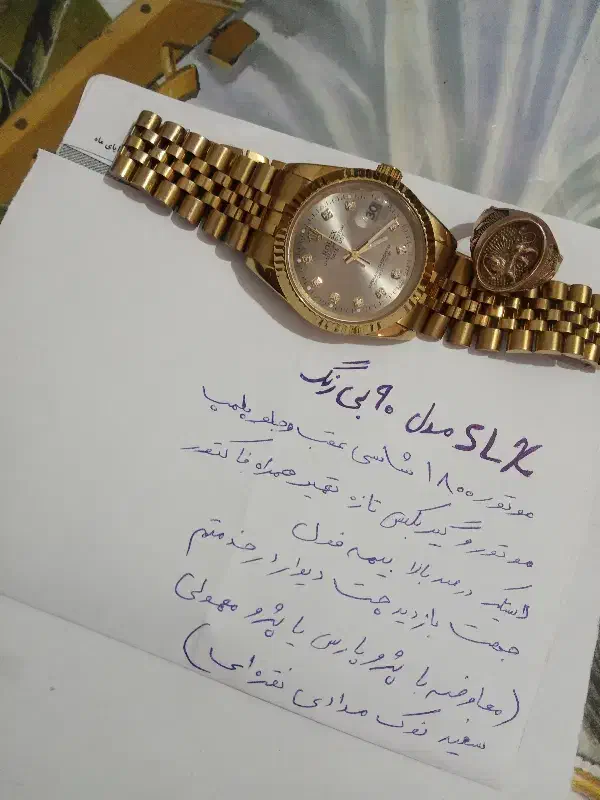 ابای ماه
SLK مدل ۹۰ بی رنگ
موتور ۱۸۰۰ شاسی عقب و جلو پلمپ
موتور و گیربکس تازه تعمیر همراه فاکتور
لاستیک درصد بالا بیمه فول
جهت بازدید چت دیوار در خدمتم
(معاوضه با پژو پارس یا پژو معمولی
سفید نوک مدادی نقره‌ای)